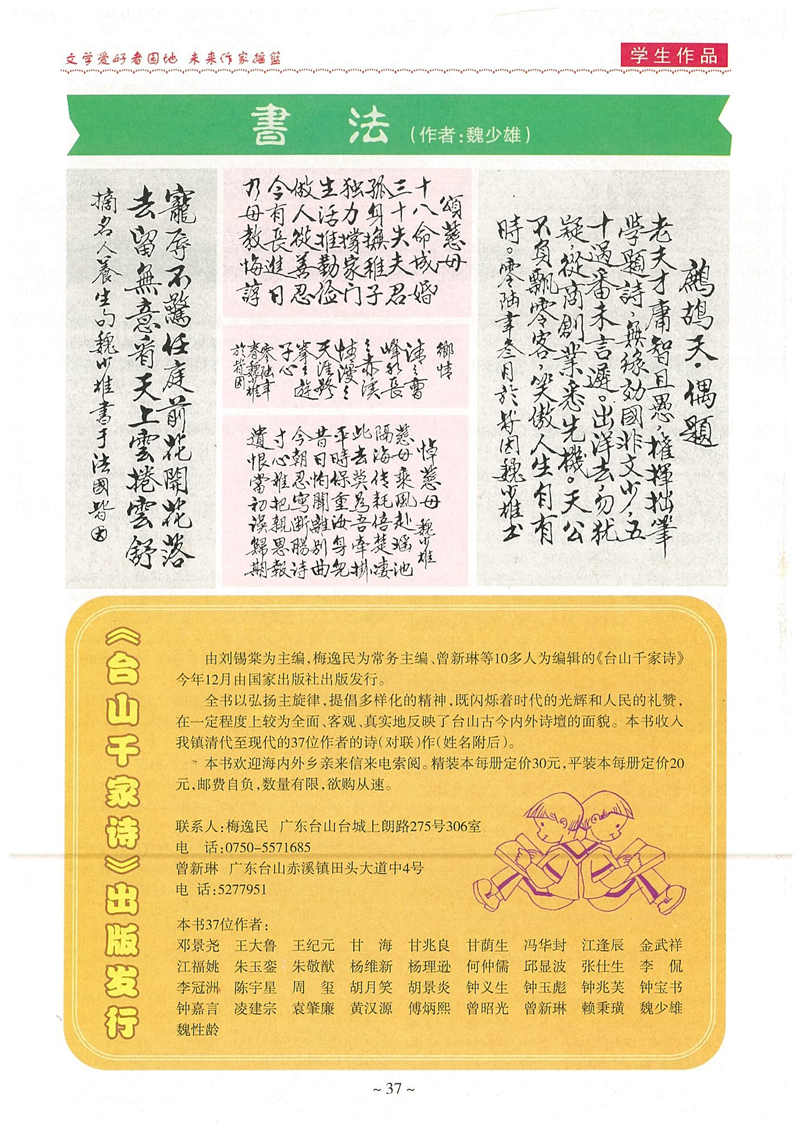 文学爱好者园地 未来作家摇篮
学生作品
書 法（作者:魏少雄）
鷓鴣天·偶題
老夫才庸智且愚，權揮拙筆
學題詩，無緣効國非文少，五
十過番未言遲。出洋去勿犹
疑，從商創業悉先機。天公
不負飄零客，笑傲人生自有
時。
頌慈母
十八命成婚
三十失夫君
孤身撫稚子
独力撐家门
生活推勤儉
做人從善忍
今有長進日
乃母教悔諄
鄉情
悼慈母 魏少雄
慈母乘風赴瑶池
隔海传耗倍楚凄
此去莫为吾牵掛
平時保重海每兒
昔日怕聞離别曲
今朝忍寫断腸詩
寸心难把親恩報
遺恨當初误歸期
寵辱不驚任庭前花開花落
去留無意看天上雲捲雲舒
摘名人養生句魏少雄書于法國
《台山千家诗》出版发行
由刘锡棠为主编,梅逸民为常务主编、曾新琳等10多人为编辑的《台山千家诗》
今年12月由国家出版社出版发行。
全书以弘扬主旋律,提倡多样化的精神,既闪烁着时代的光辉和人民的礼赞,
在一定程度上较为全面、客观、真实地反映了台山古今内外诗坛的面貌。本书收入
我镇清代至现代的37位作者的诗(对联)作(姓名附后)。
本书欢迎海内外乡亲来信来电索阅。精装本每册定价30元,平装本每册定价20
元,邮费自负,数量有限,欲购从速。
联系人:梅逸民 广东台山台城上朗路275号306室
电 话:0750-5571685
曾新琳 广东台山赤溪镇田头大道中4号
电 话:5277951
本书37位作者:
邓景尧 王大鲁 王纪元 甘 海 甘兆良 甘荫生 冯华封 江逢辰 金武祥
江福姚 朱玉銮 朱敬猷 杨维新 杨理逊 何仲儒 邱显波 张仕生 李 侃
李冠洲 陈宇星 周 玺 胡月笑 胡景炎 钟义生 钟玉彪 钟兆芙 钟宝书
钟嘉言 凌建宗 袁肇廉 黄汉源 傅炳熙 曾昭光 曾新琳 赖秉璜 魏少雄
魏性龄
~ 37 ~